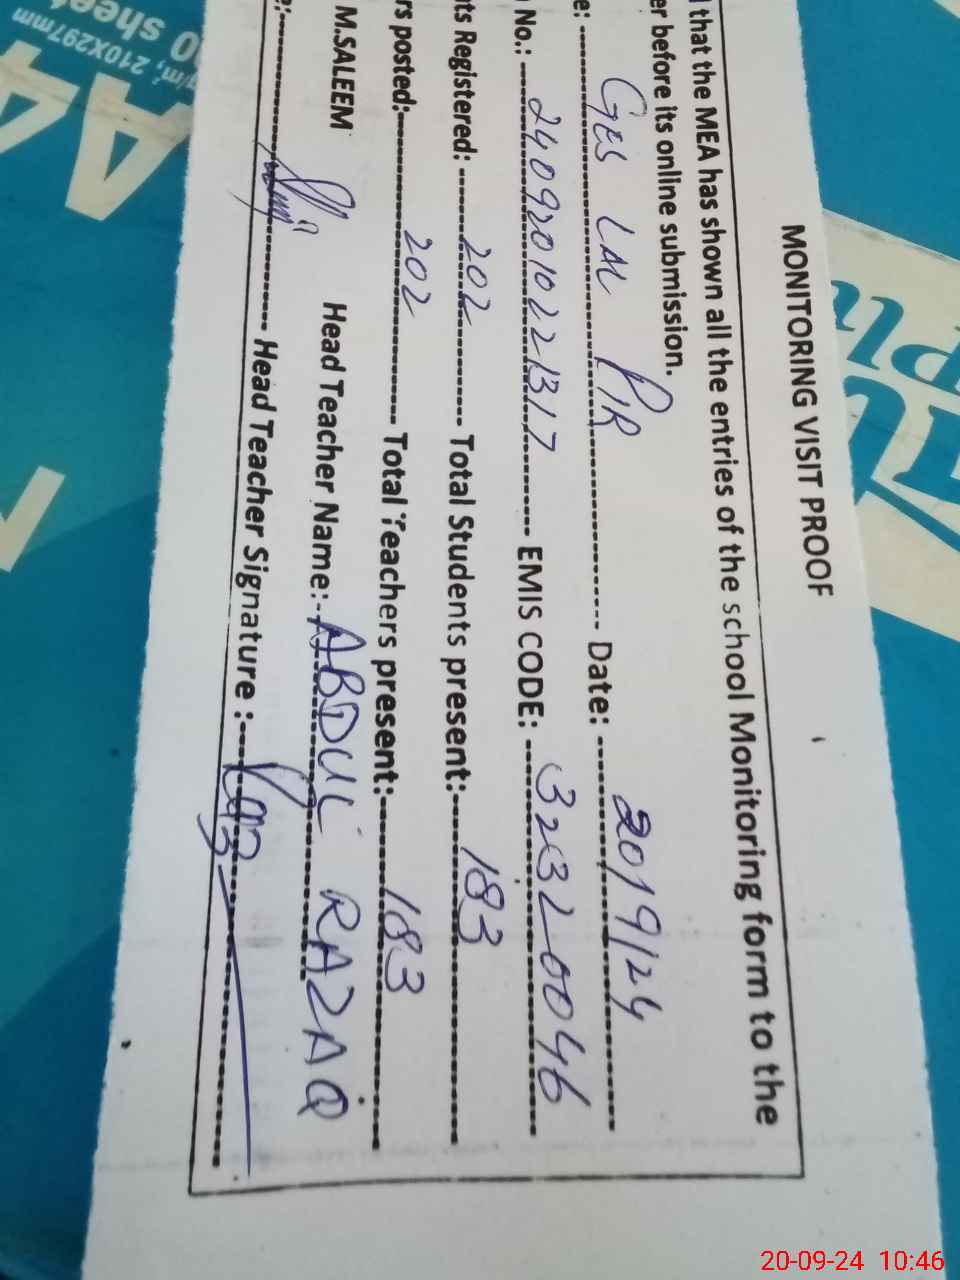 MONITORING VISIT PROOF
that the MEA has shown all the entries of the school Monitoring form to the
er before its online submission.
e: GES LAL PIR Date: 20/9/24
No.: 24092010221317 EMIS CODE: 32320046
ts Registered: 202 Total Students present: 183
rs posted: 202 Total Teachers present: 183
M.SALEEM Head Teacher Name: ABDUL RAZAQ
Head Teacher Signature :
A4
210X297mm
0 sheets
20-09-24 10:46